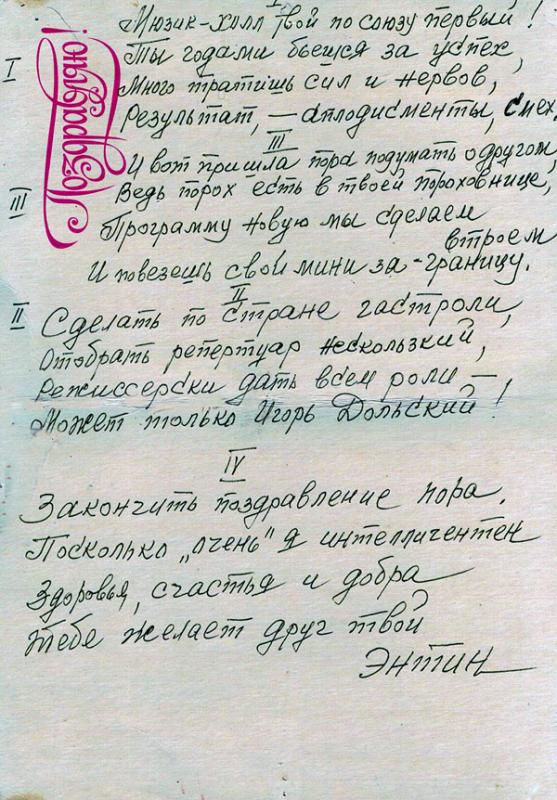 Поздравляю!
I
Мюзик-холл твой по союзу первый!
I
Ты годами бьешся за успех,
Много тратишь сил и нервов,
Результат, — аплодисменты, смех,
III
И вот пришла пора подумать о другом,
III
Ведь порох есть в твоей пороховнице,
Программу новую мы сделаем
втроем
И повезешь свой мини за-границу.
II
II
Сделать по стране гастроли,
Отобрать репертуар нескользкий,
Режиссерски дать всем роли —
Может только Игорь Дольский!
IV
Закончить поздравление пора.
Посколько „очень" я интелличентен
Здоровья, счастья и добра
Тебе желает друг твой
Энтин